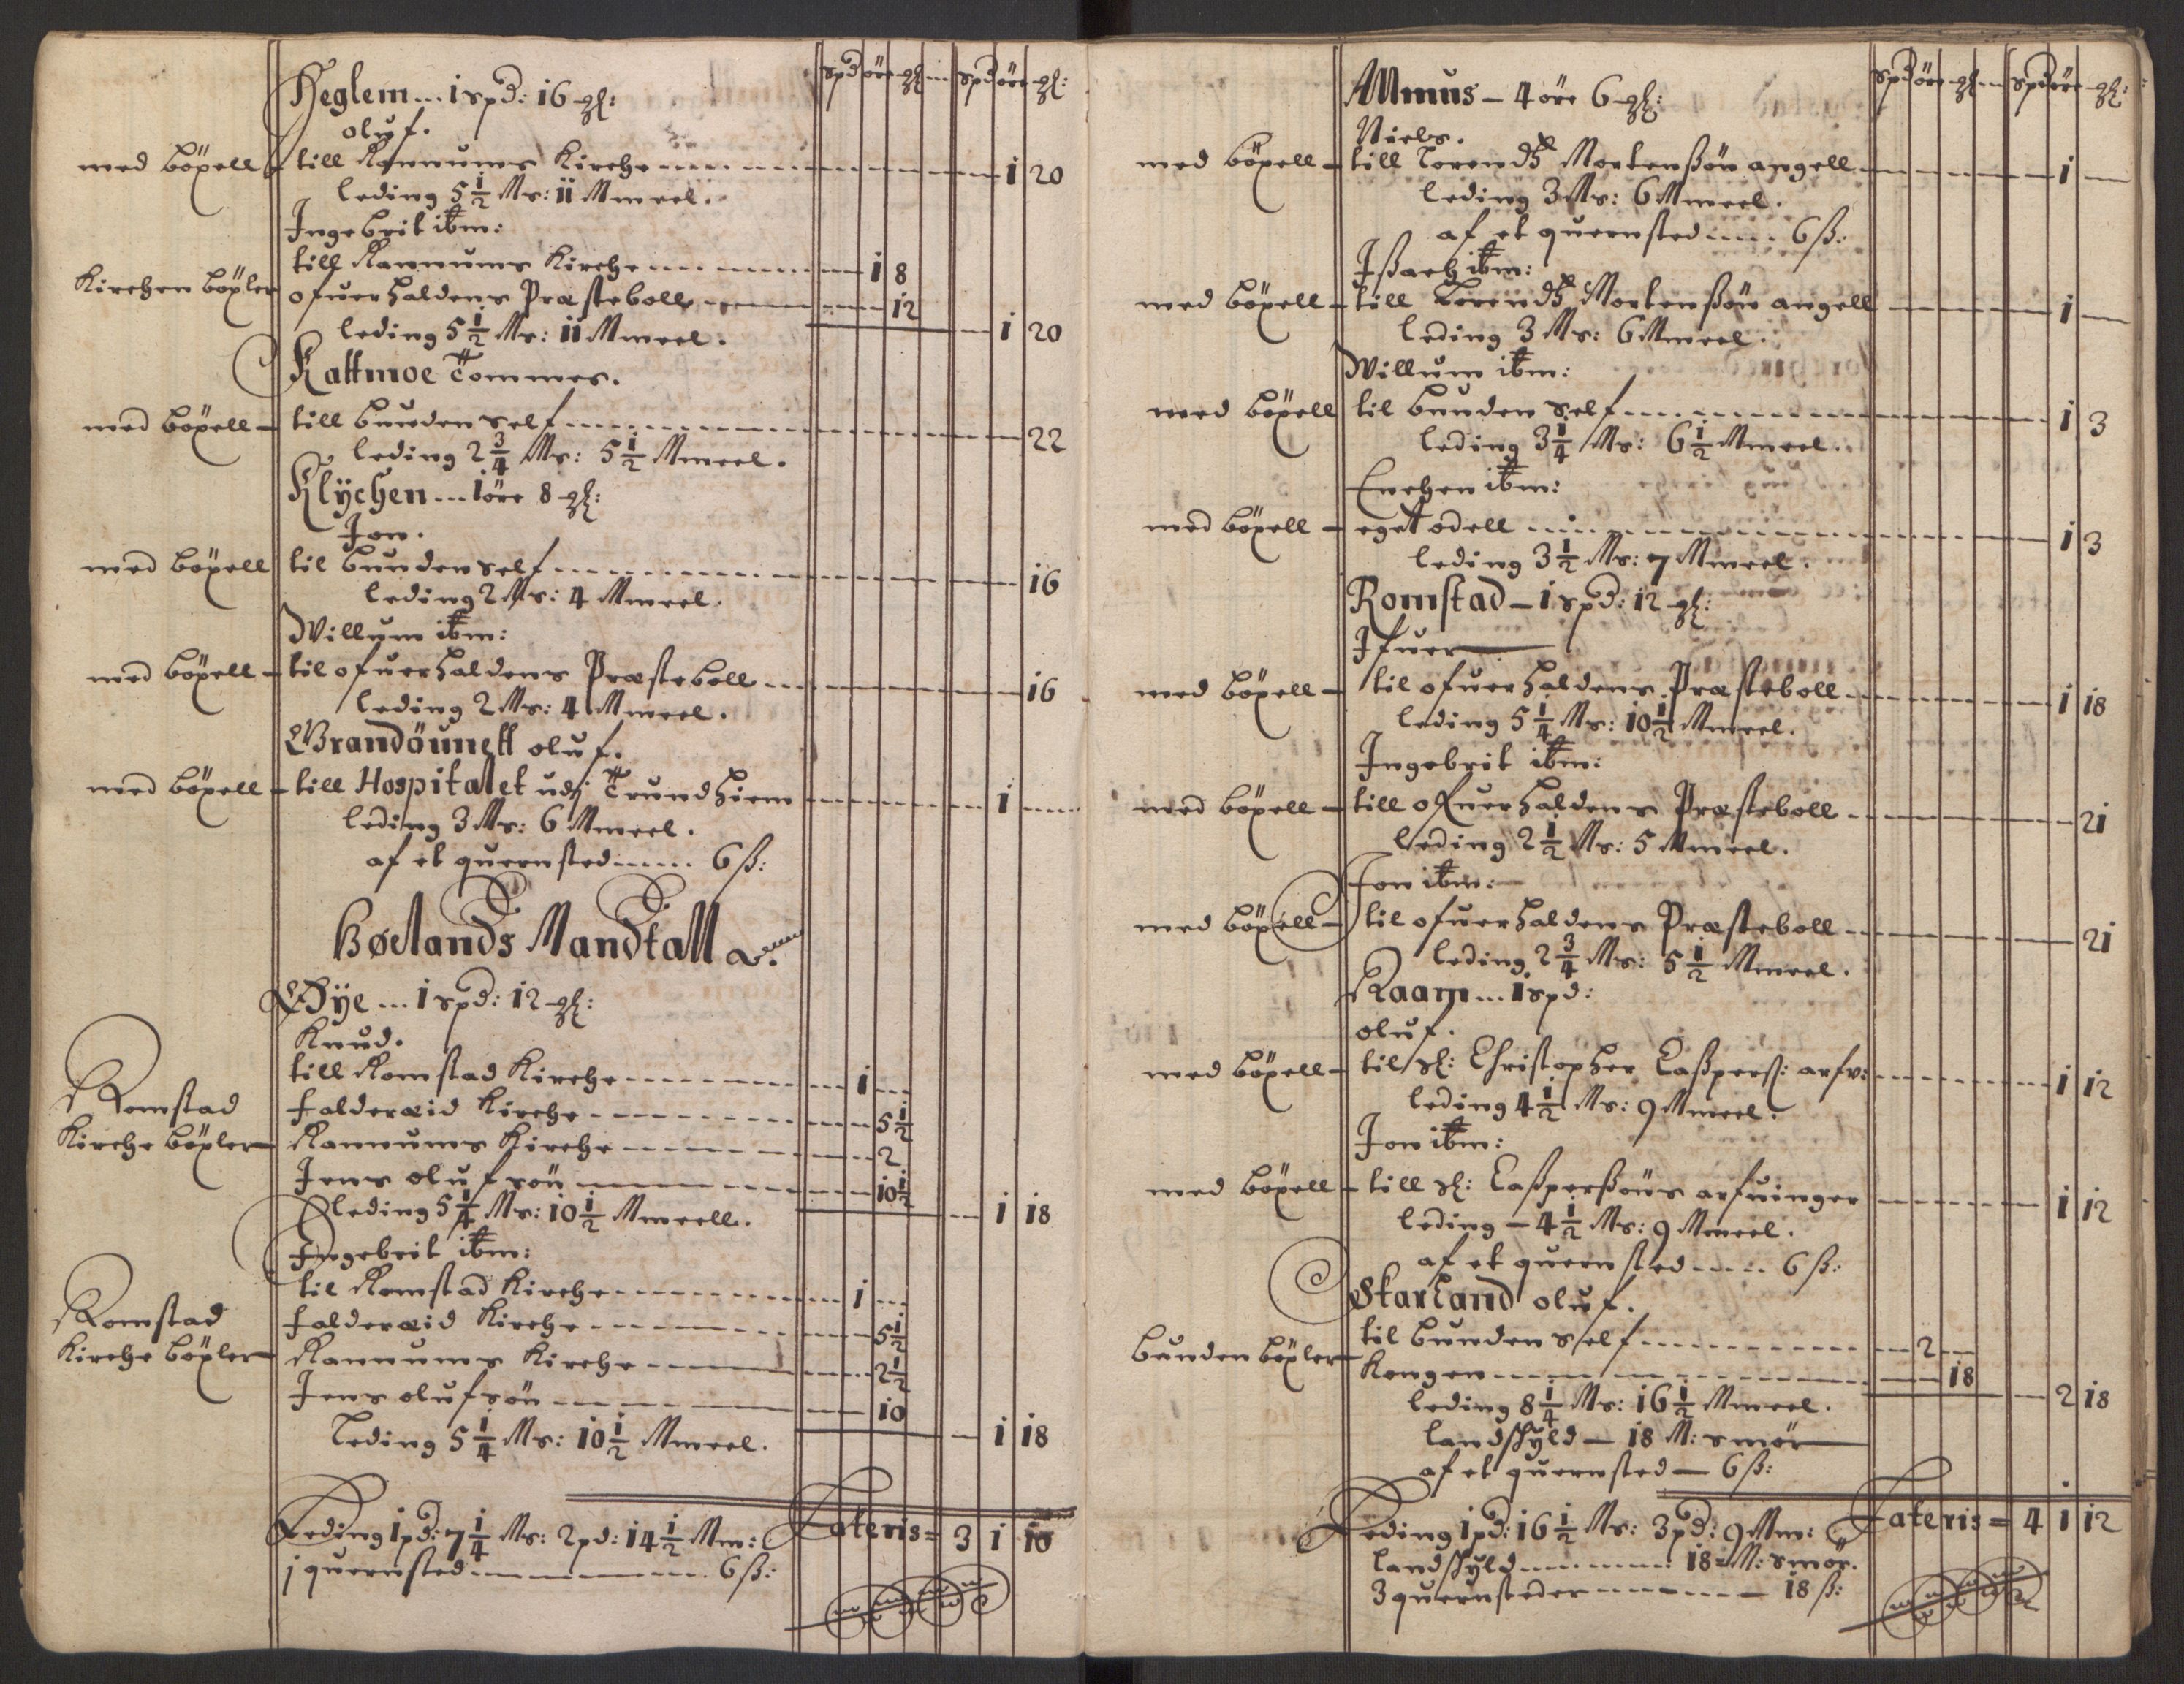 spd öre gl: spd öre gl:
Heglem ... 1 spd: 16 gl:
oluf.
med böxell till Rannums Kirche 1 20
leding 5 1/2 Mr: 11 Mmeel.
Ingebrit ibm:
till Rannums Kirche 1 8
Kirchen böxler ofuerhaldens Præsteboll 12
leding 5 1/2 Mr: 11 Mmeel. 1 20
Kattmoe Tommes.
med böxell till bunden self 22
leding 2 3/4 Mr: 5 1/2 Mmeel.
Klÿchen ... 1 öre 8 gl:
Jon.
med böxell til bunden self 16
leding 2 Mr: 4 Mmeel.
Willum ibm:
med böxell til ofuerhaldens Præsteboll 16
leding 2 Mr: 4 Mmeel.
Brandöunett oluf.
med böxell till Hospitalet udj Trundhiem 1
leding 3 Mr: 6 Mmeel.
af et quernsted 6 ß:
Bøelands Mandtall
Øÿe ... 1 spd: 12 gl:
Knud.
till Romstad Kirche 1
Romstad falderæid Kirche 5 1/2
Kirche böxler Rannums Kirche 2
Jens olufsön 10 1/2
leding 5 1/4 Mr: 10 1/2 Mmeell. 1 18
Ingebrit ibm:
til Romstad Kirche 1
Romstad falderæid Kirche 5 1/2
Kirche böxler Rannums Kirche 2 1/2
Jens olufsön 10
leding 5 1/4 Mr: 10 1/2 Mmeel. 1 18
Leding 1 pd: 7 1/4 Mr: 2 pd: 14 1/2 Mm: Lateris = 3 1 10
j quernsted 6 ß:
spd öre gl: spd öre gl:
Allmus - 4 öre 6 gl:
Niels.
med böxell till Lorendß Mortenßön angell 1
leding 3 Mr: 6 Mmeel.
af et quernsted 6 ß:
Ißach ibm:
med böxell till Lorendß Mortenßön angell 1
leding 3 Mr: 6 Mmeel.
Willum ibm:
med böxell til bunden self 1 3
leding 3 1/4 Mr: 6 1/2 Mmeel.
Enchen ibm:
med böxell eget odell 1 3
leding 3 1/2 Mr: 7 Mmeel.
Romstad - 1 spd: 12 gl:
Ifuer
med böxell til ofuerhaldens Præsteboll 1 18
leding 5 1/4 Mr: 10 1/2 Mmeel.
Ingebrit ibm:
med böxell till ofuerhaldens Præsteboll 21
leding 2 1/2 Mr: 5 Mmeel.
Jon ibm:
med böxell til ofuerhaldens Præsteboll 21
leding 2 3/4 Mr: 5 1/2 Mmeel.
Raam ... 1 spd:
oluf.
med böxell til Sl: Christopher Caßperß: arfv: 1 12
leding 4 1/2 Mr: 9 Mmeel.
Jon ibm:
med böxell till Sl: Caßperßöns arfuinger 1 12
leding - 4 1/2 Mr: 9 Mmeel.
af et quernsted 6 ß:
Starland oluf.
til bunden self 2
bunden böxler Kongen 18
leding 8 1/4 Mr: 16 1/2 Mmeel. 2 18
landschÿld - 18 M: smör
af et quernsted - 6 ß:
Leding 1 pd: 16 1/2 Mr: 3 pd: 9 Mm: Lateris = 4 1 12
landschÿld 18 M: smör.
3 quernsteder 18 ß: